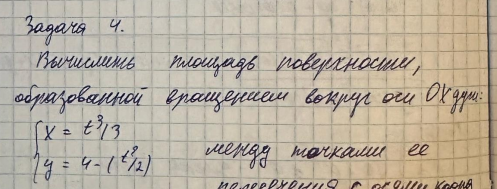 Задача 4.
Вычислить площадь поверхности,
образованной вращением вокруг оси OX дуги:
{ x = t³/3
{ y = 4 - (t²/2)
между точками ее
пересечения с осями коорд